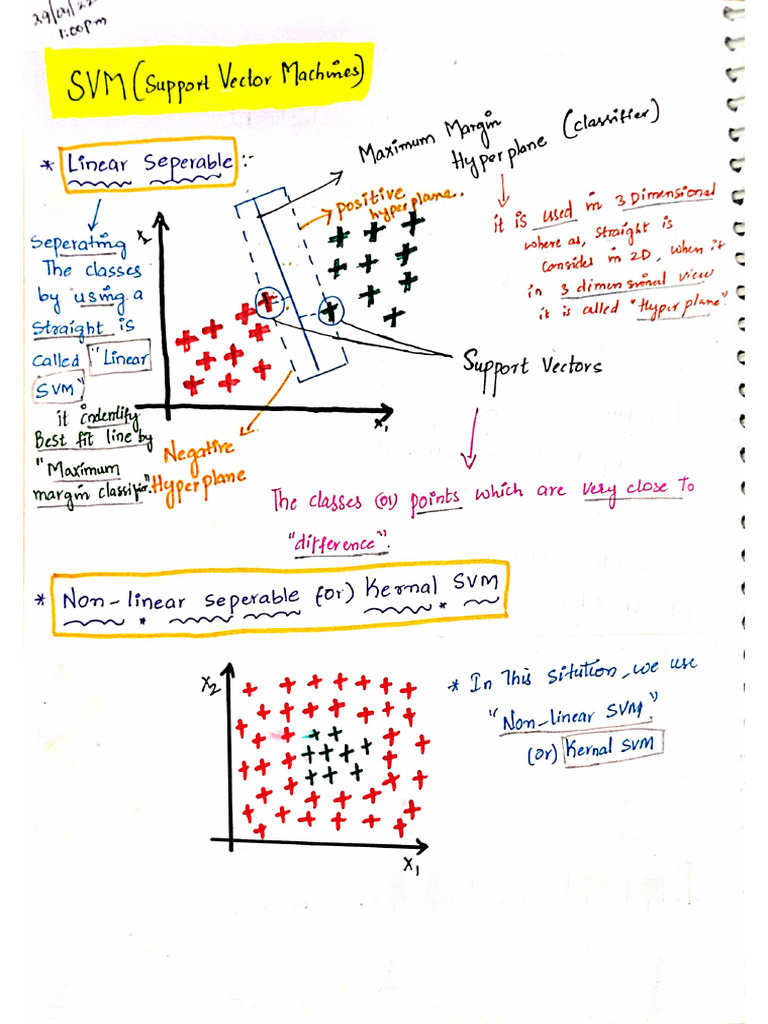 1:00pm
SVM (Support Vector Machines)
* Linear Seperable :-
Maximum Margin
Hyperplane (classifier)
positive
hyperplane..
it is used in 3 Dimensional
where as, straight is
consider in 2D, when it
in 3 dimensional view
it is called "Hyperplane".
Seperating
The classes
by using a
straight is
called "Linear
SVM"
it indentify
Best fit line by
"Maximum
margin classifier."
X2
X1
Support Vectors
Negative
Hyperplane
The classes (or) points which are very close to
"difference".
* Non-linear seperable (or) Kernal SVM
X2
X1
* In This sitution, we use
"Non-linear SVM."
(or) Kernal SVM